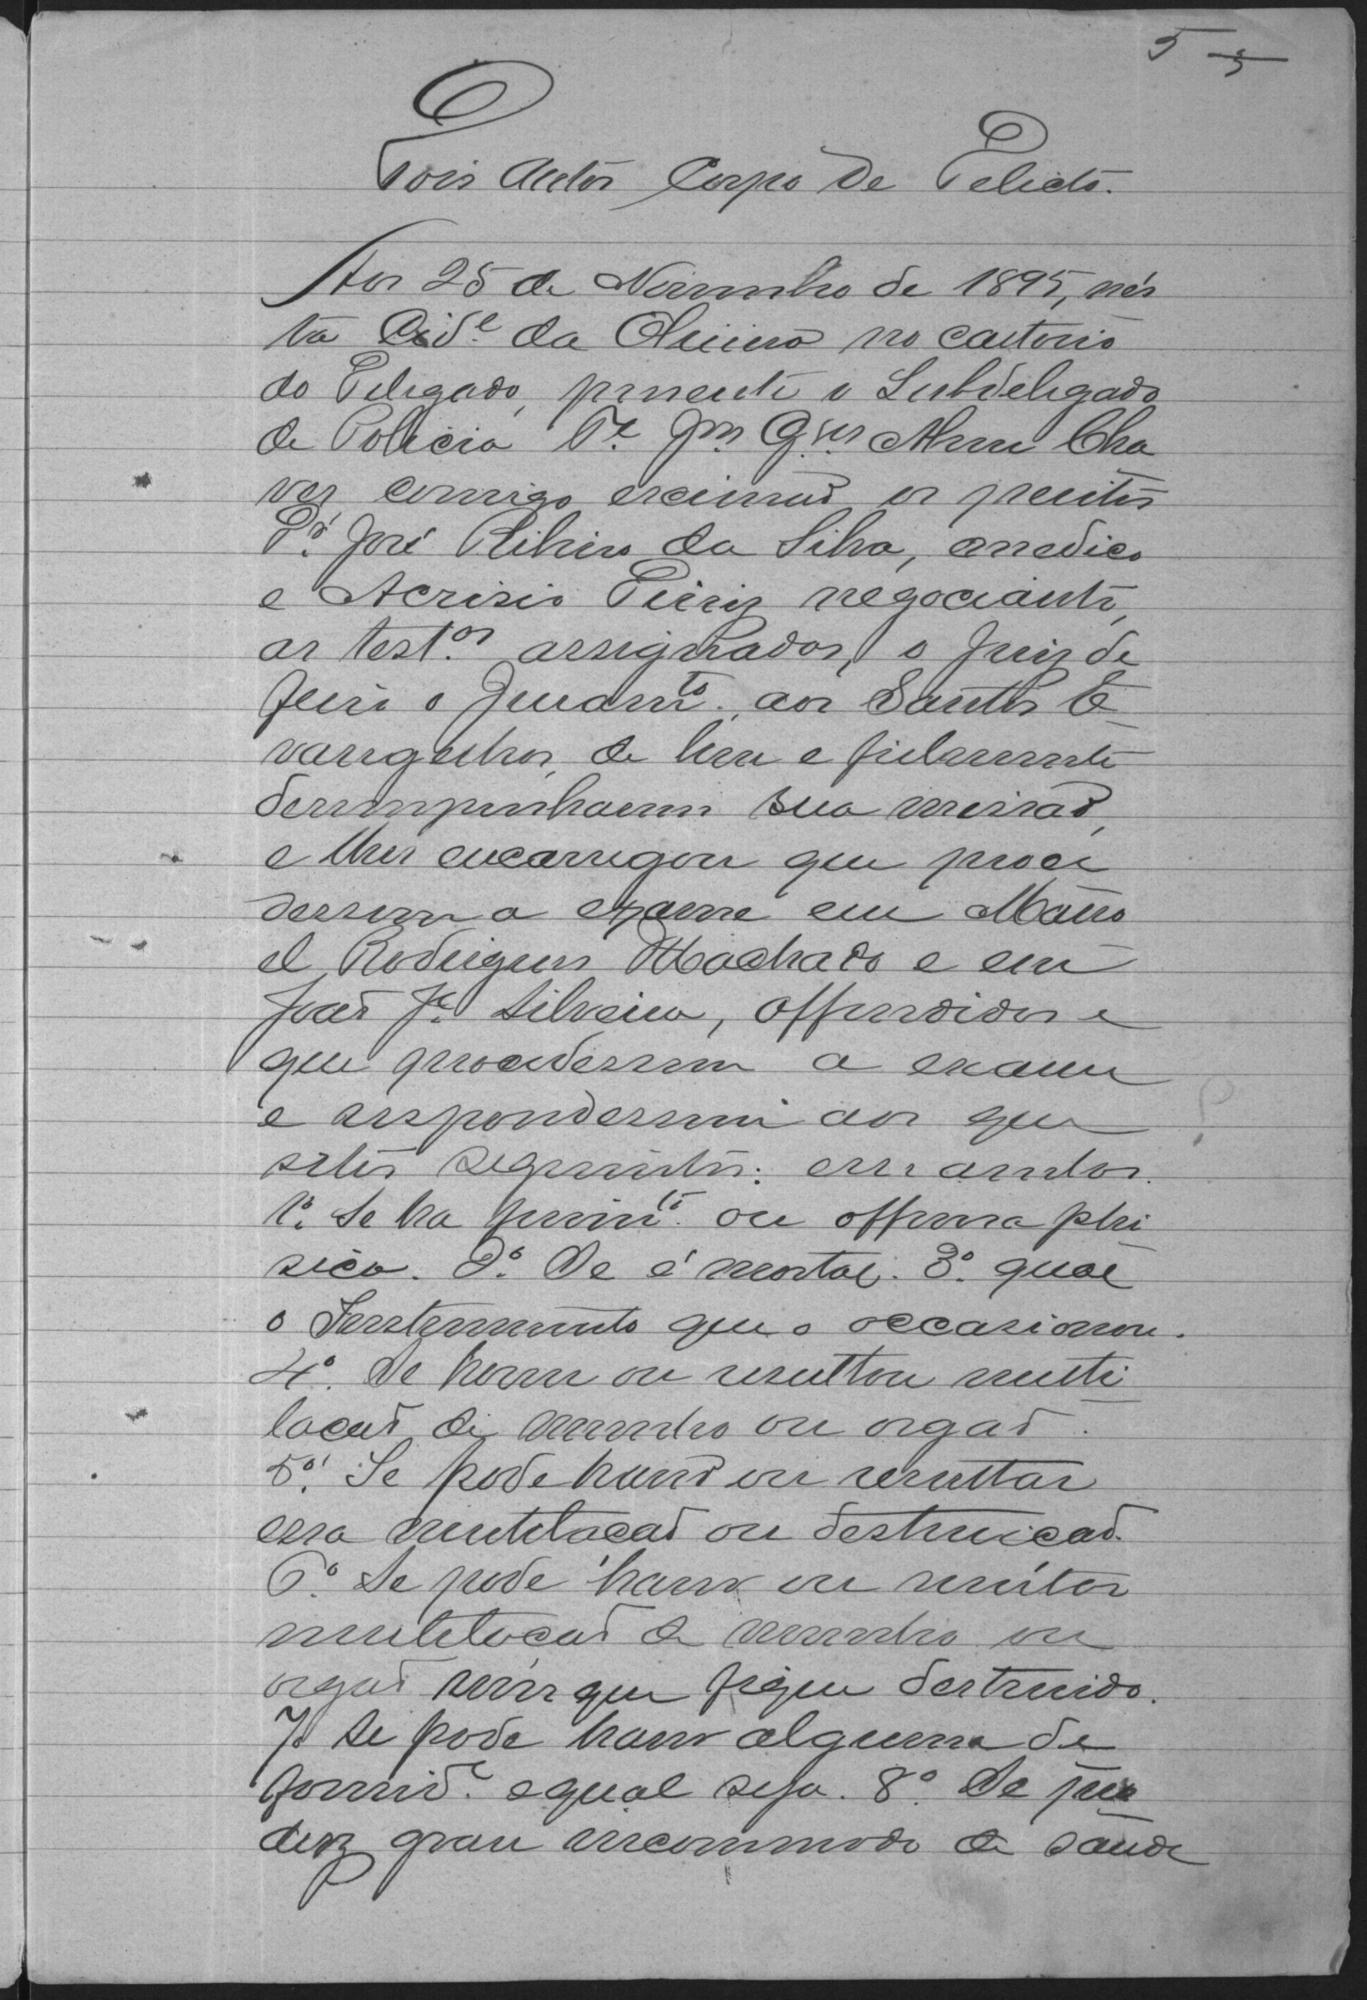 5 5
Dois Autos Corpo de Delicto.
Aos 25 de Novembro de 1895, nes
ta Cid.e da Oliveira no cartorio
do Delegado, presente o Subdelegado
de Policia T.e Jm Gves Chha
ves comigo escrivaõ os peritos
Dr. José Ribeiro da Silva, medico
e Acrisio Diniz negociante,
as test.as assignados, o Juiz de
feriu o Juram.to aos Santos E
vangelhos, de bem e fielmente
desempenharem sua missaõ,
e lhes encarregou que proce
dessem a exame em Mano
el Rodrigues Machado e em
Joaõ Je Silveira, offendidos e
que procedessem a exame
e respondessem aos que
sitos seguintes:
1º. Se ha ferim.to ou offensa phi
sica. 2º. Se é mortal. 3º. qual
o Instrumento que o occasionou.
4º. Se houve ou resultou muti
lacaõ de membro ou orgaõ.
5º. Se pode haver ou resultar
essa mutilacaõ ou destruicaõ.
6º. Se pode haver ou resultar
mutilacaõ de membro ou
orgaõ sem que fique destruido.
7º Se pode haver alguma de
formid.e e qual seja. 8º. Se pro
duz grave incommodo de saude